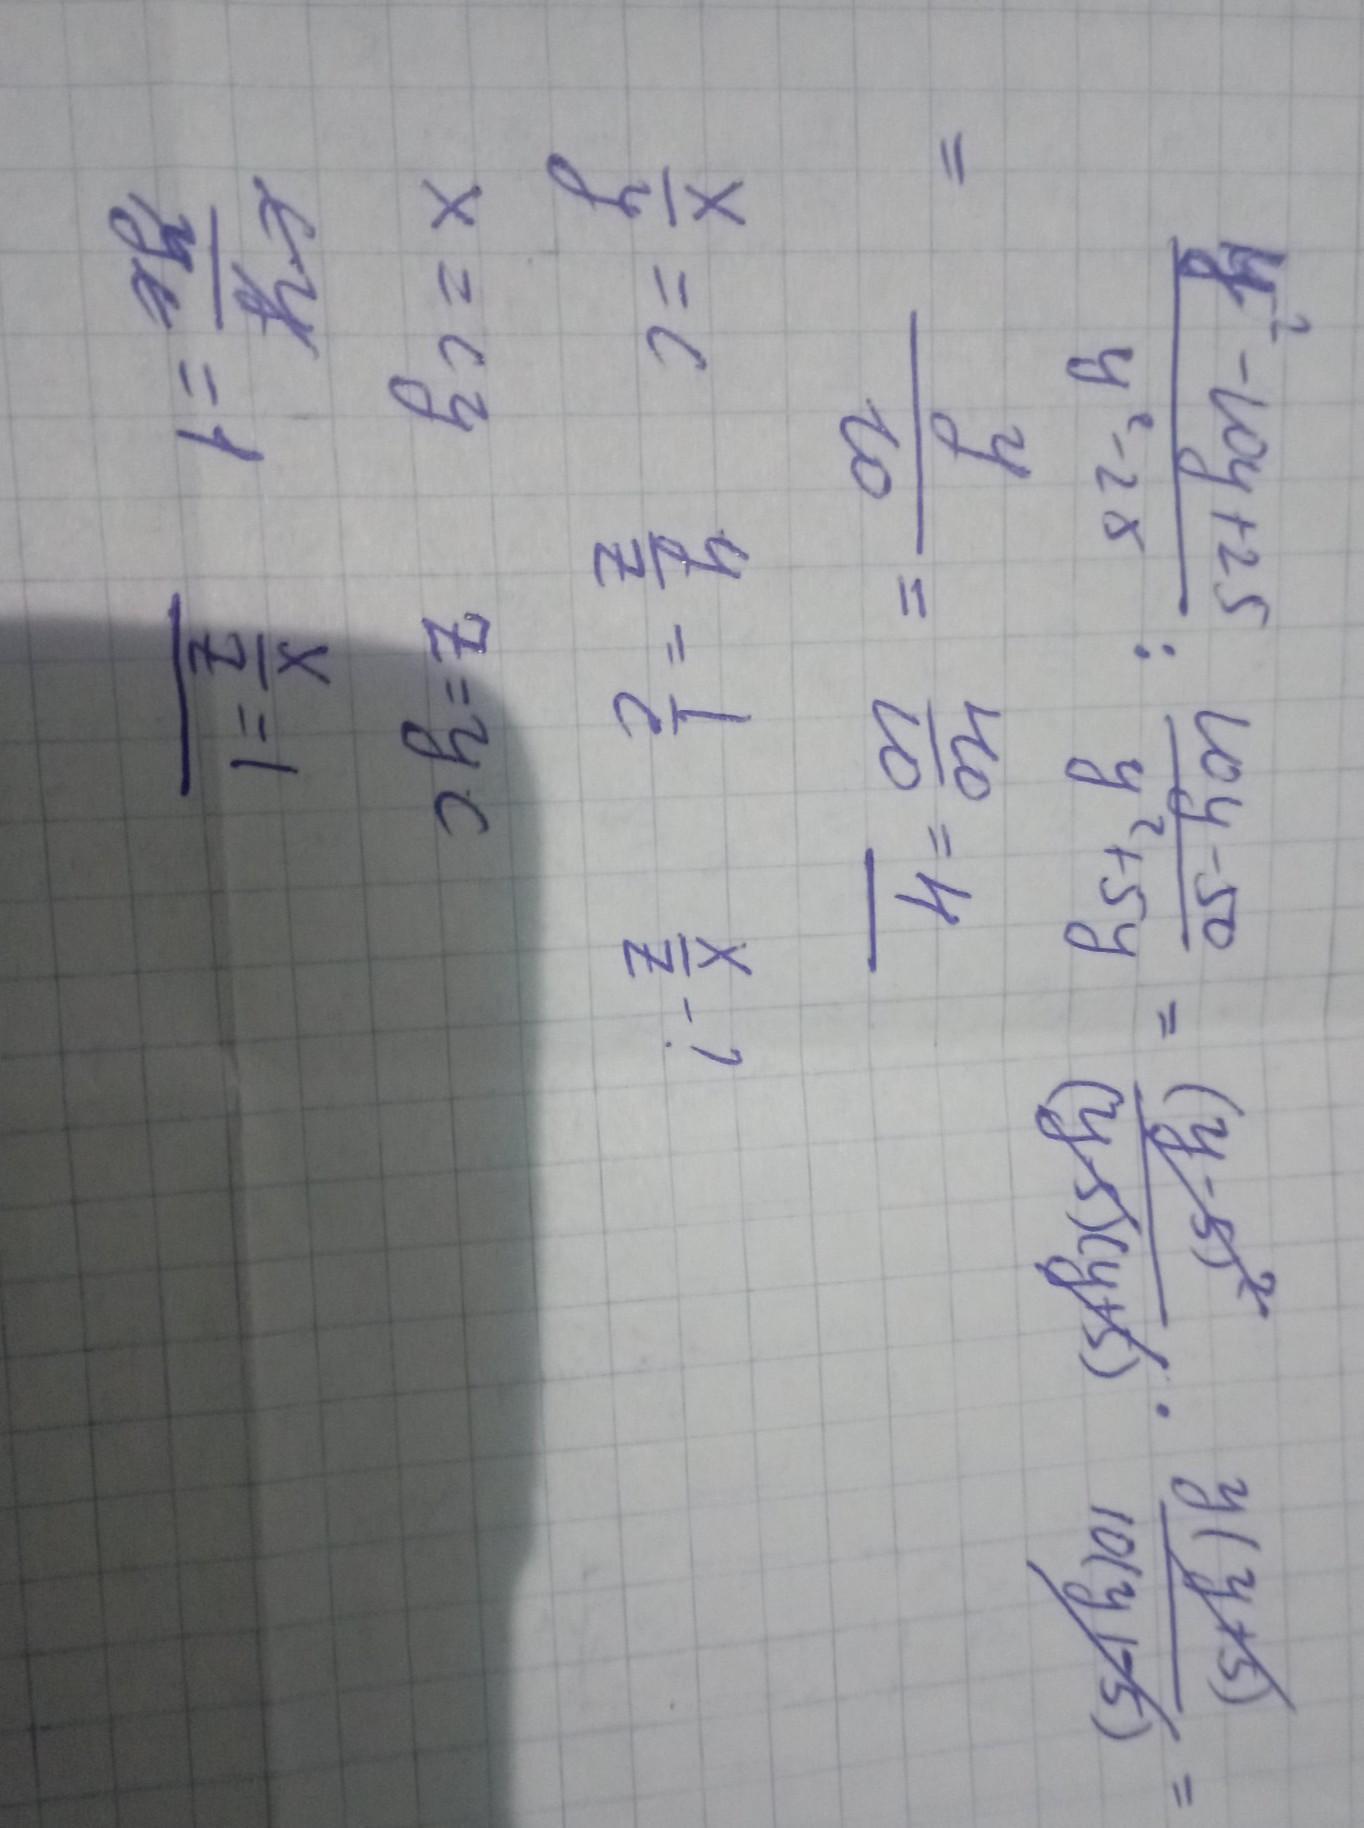 y² - 10y + 25 / y² - 25 : 10y - 50 / y² + 5y = (y - 5)² / (y - 5)(y + 5) · y(y + 5) / 10(y - 5) =
= y / 10 = 40 / 10 = 4
x / y = c y / z = 1 / c x / z - ?
x = cy z = yc
cy / yc = 1 x / z = 1